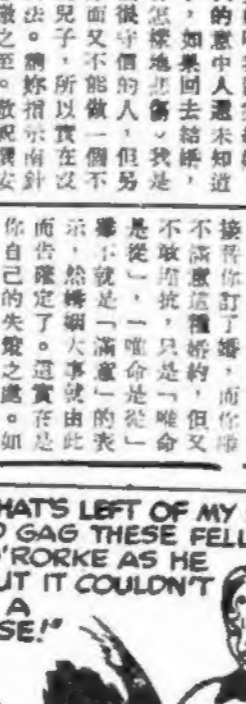 的意中人還未知道
，如果回去結婚，
怎樣地悲傷。我是
很守信的人，但另
面又不能做一個不
兒子，所以實在沒
法。請妳指示南針
激之至。敬祝安
接替你訂了婚，而你雖
不滿意這種婚約，但又
不敢抵抗，只是「唯命
是從」，「唯命是從」
不就是「滿意」的表
示，然婚姻大事就由此
而告確定了。這實在是
你自己的失之處。如
HAT'S LEFT OF MY
GAG THESE FELL
'RORKE AS HE
UT IT COULDN'T
A
SE!"